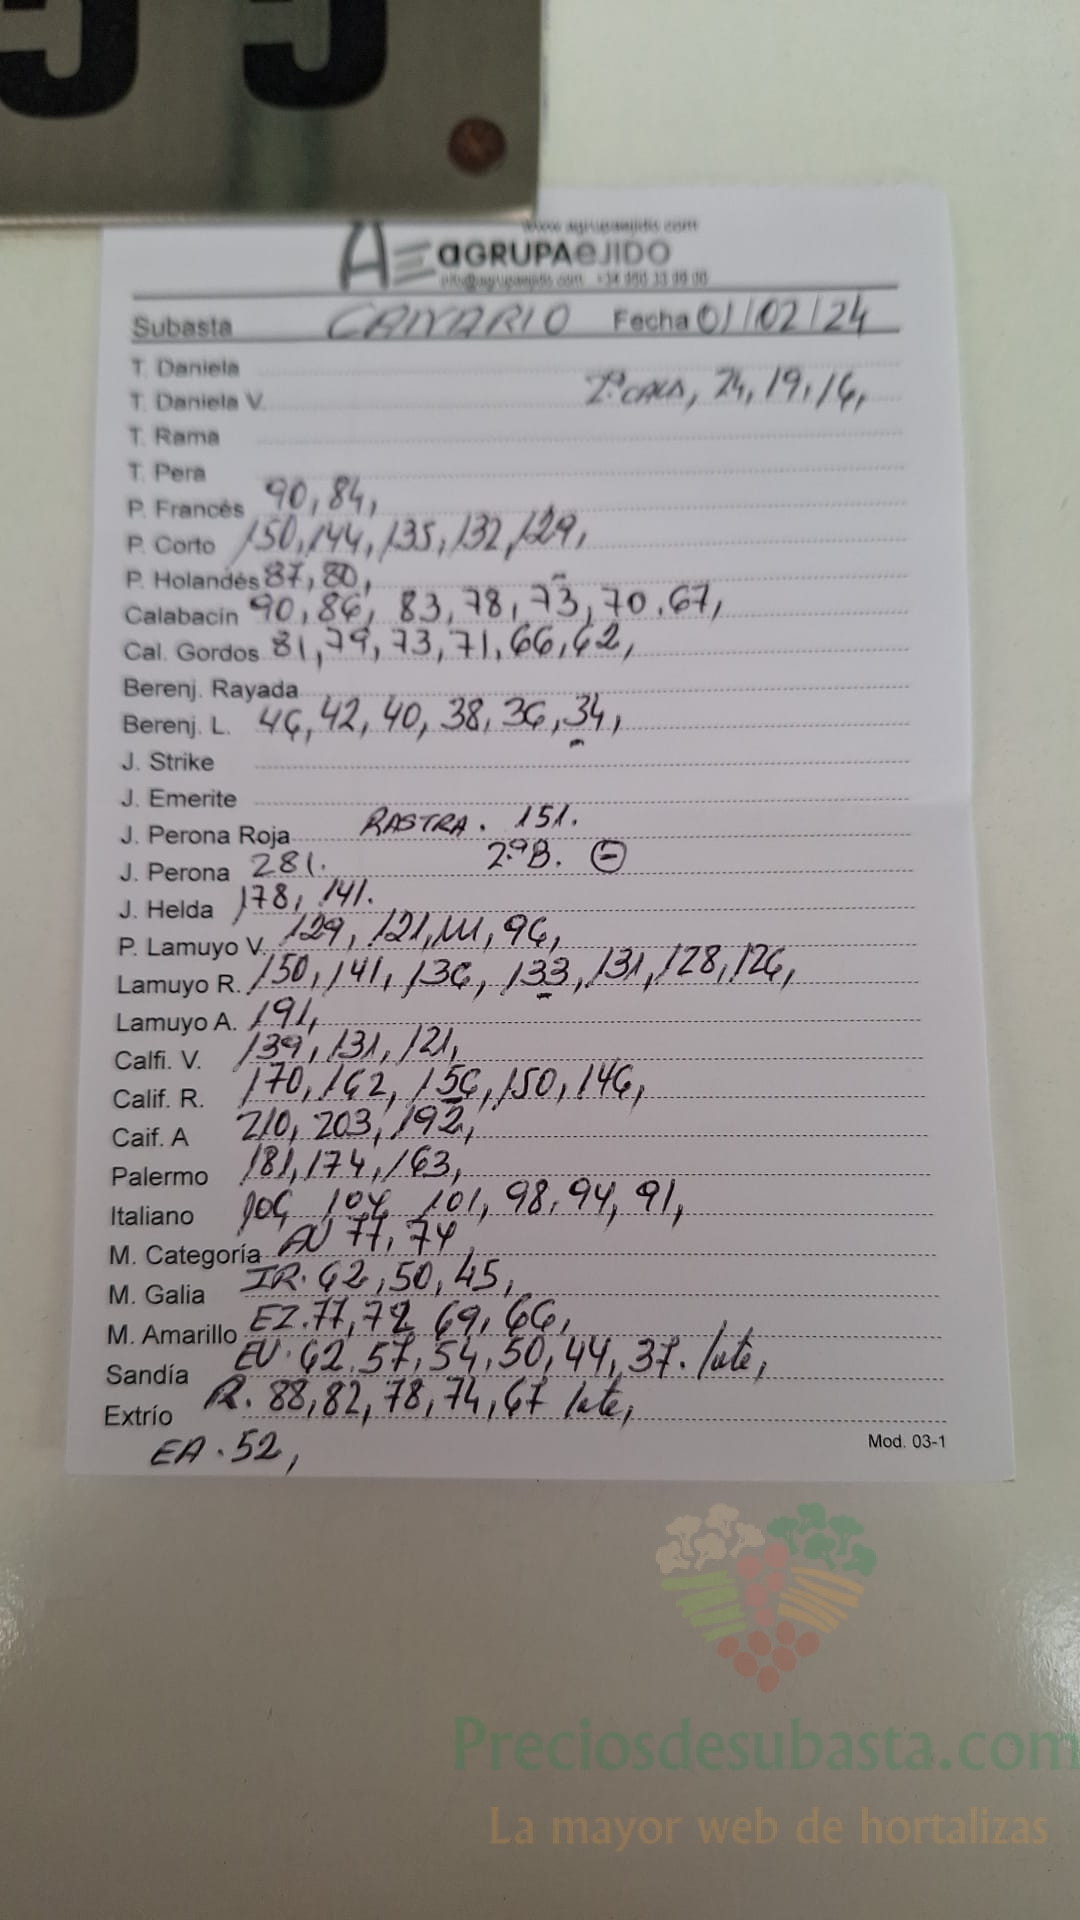 55
www.agrupaejido.com
AE aGRUPAeJIDO
info@agrupaejido.com +34 950 33 99 90
Subasta CANARIO Fecha 01/02/24
T. Daniela
T. Daniela V. 2ª CALA, 24, 19, 16,
T. Rama
T. Pera
P. Francés 90, 84,
P. Corto 150, 144, 135, 132, 129,
P. Holandés 87, 80,
Calabacín 90, 86, 83, 78, 73, 70, 67,
Cal. Gordos 81, 79, 73, 71, 66, 62,
Berenj. Rayada
Berenj. L. 46, 42, 40, 38, 36, 34,
J. Strike
J. Emerite
J. Perona Roja RASTRA. 151.
J. Perona 281. 2ªB. (-)
J. Helda 178, 141.
P. Lamuyo V. 129, 121, 111, 96,
Lamuyo R. 150, 141, 136, 133, 131, 128, 126,
Lamuyo A. 191,
Calfi. V. 139, 131, 121,
Calif. R. 170, 162, 156, 150, 146,
Caif. A 210, 203, 192,
Palermo 181, 174, 163,
Italiano 106, 104, 101, 98, 94, 91,
M. Categoría AU 77, 74,
M. Galia IR. 62, 50, 45,
M. Amarillo EZ. 77, 72, 69, 66,
Sandía EU. 62, 57, 54, 50, 44, 37. lote,
Extrío R. 88, 82, 78, 74, 67 lote,
EA. 52,
Mod. 03-1
Preciosdesubasta.com
La mayor web de hortalizas